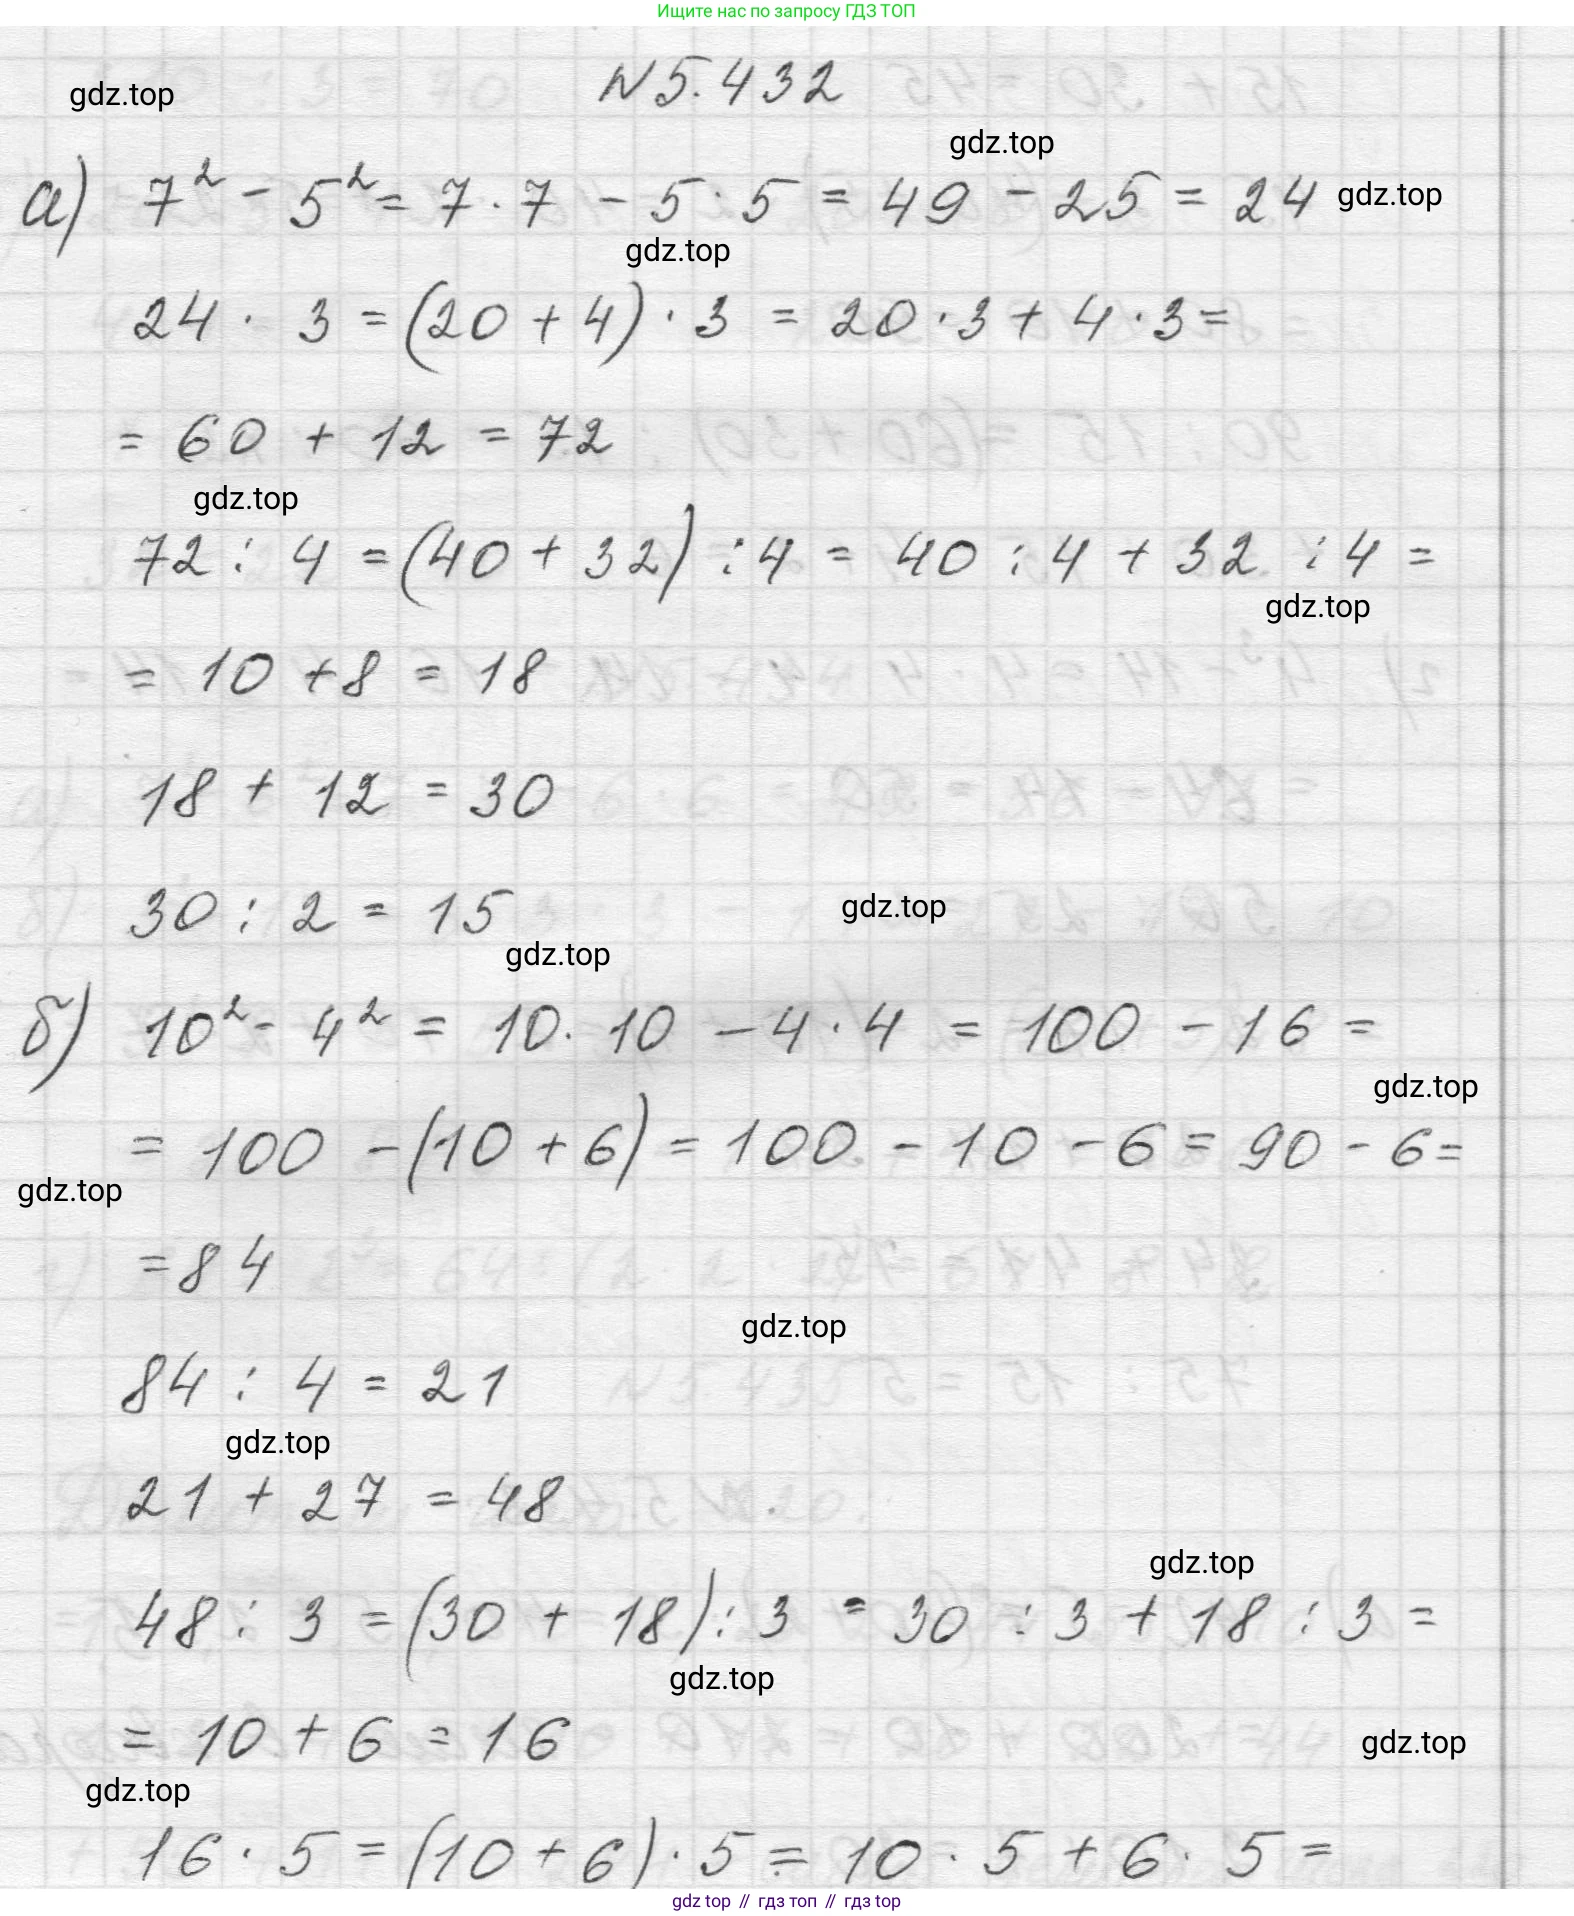 Ищите нас по запросу ГДЗ ТОП
N 5.432
gdz.top
gdz.top
а) 7² - 5² = 7 · 7 - 5 · 5 = 49 - 25 = 24 gdz.top
gdz.top
24 · 3 = (20 + 4) · 3 = 20 · 3 + 4 · 3 =
= 60 + 12 = 72
gdz.top
72 : 4 = (40 + 32) : 4 = 40 : 4 + 32 : 4 =
gdz.top
= 10 + 8 = 18
18 + 12 = 30
30 : 2 = 15
gdz.top
gdz.top
б) 10² - 4² = 10 · 10 - 4 · 4 = 100 - 16 =
gdz.top
= 100 - (10 + 6) = 100 - 10 - 6 = 90 - 6 =
gdz.top
= 84
gdz.top
84 : 4 = 21
gdz.top
21 + 27 = 48
gdz.top
48 : 3 = (30 + 18) : 3 = 30 : 3 + 18 : 3 =
gdz.top
= 10 + 6 = 16
gdz.top
gdz.top
16 · 5 = (10 + 6) · 5 = 10 · 5 + 6 · 5 =
gdz top // гдз топ // гдз top